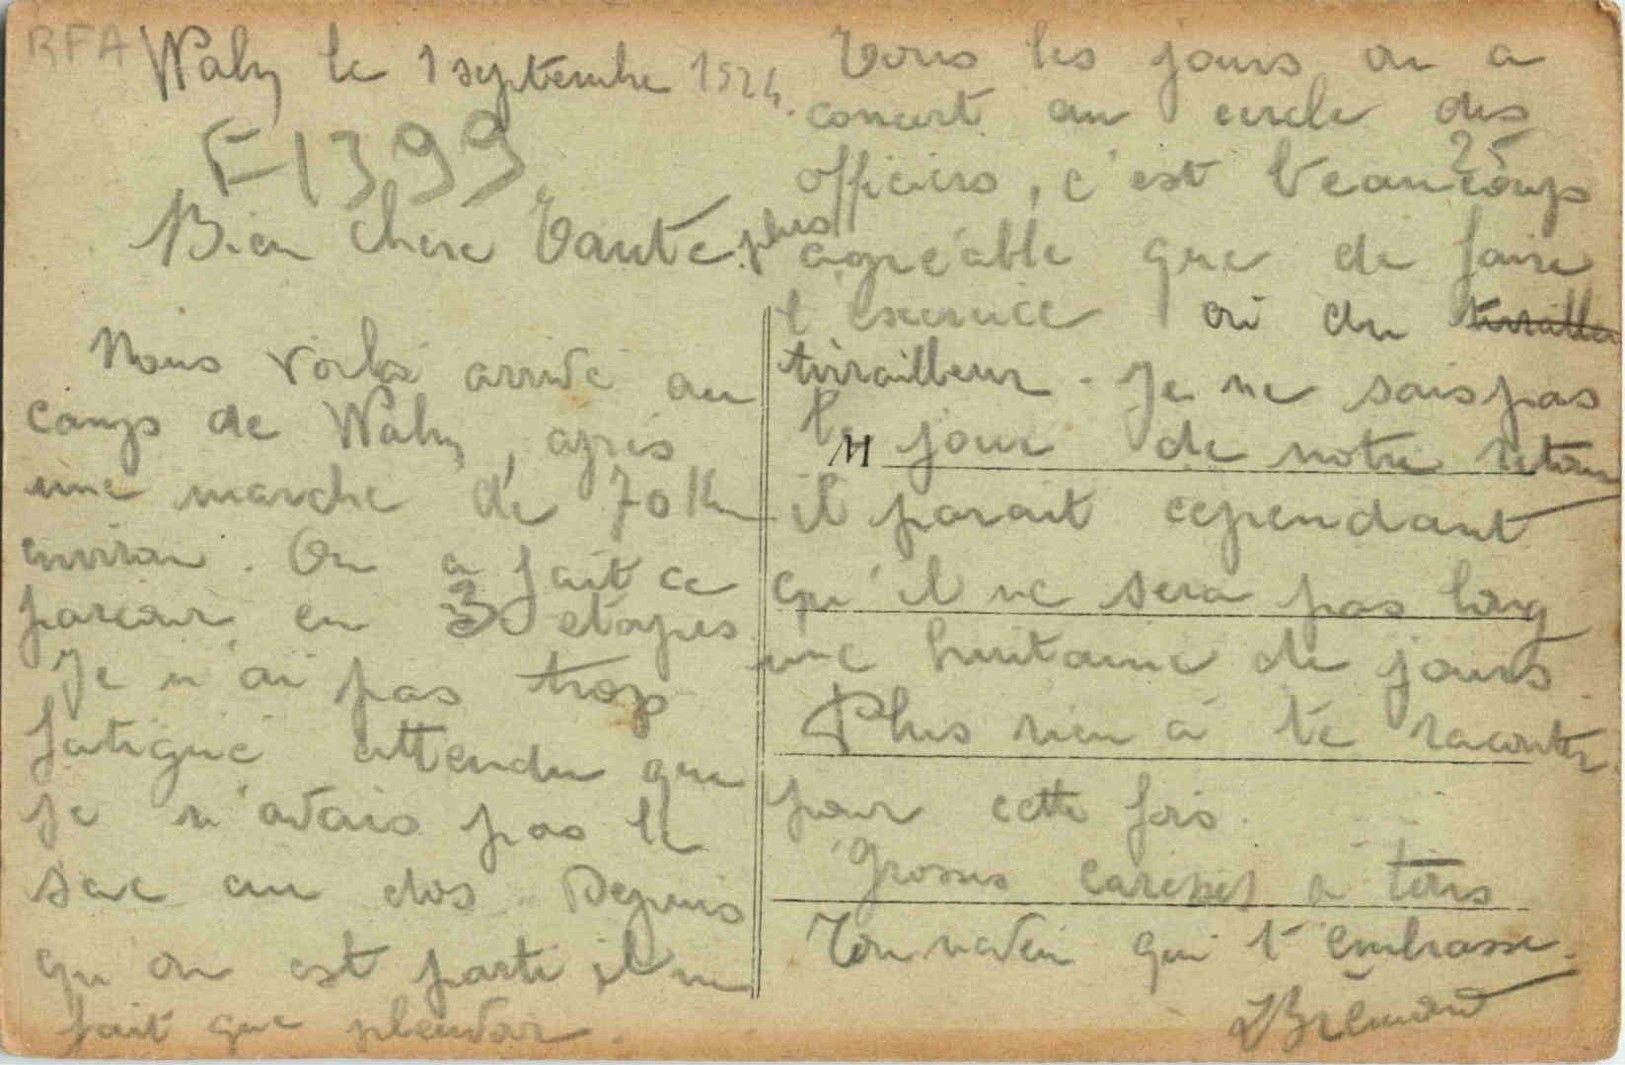 RFA
Wahn le 1 septembre 1924.
F1399
Bien chere Tante.
Nous voila arrivé au
camp de Wahn, après
une marche de 70 Km
environ. On a fait ce
parcour en 3 etapes
Je n'ai pas trop
fatigué attendu que
je n'avais pas le
sac au dos. Depuis
qu'on est parti il ne
fait que pleuvoir.
Tous les jours on a
concert au cercle des
officiers, c'est beaucoup
25
plus agréable que de faire
l'exercice ou du tirailleur
tirailleur. Je ne sais pas
le jour de notre retour
M
il parait cependant
qu'il ne sera pas long
une huitaine de jours.
Plus rien à te raconter
pour cette fois.
Grosses caresses à tous
Ton neveu qui t'embrasse.